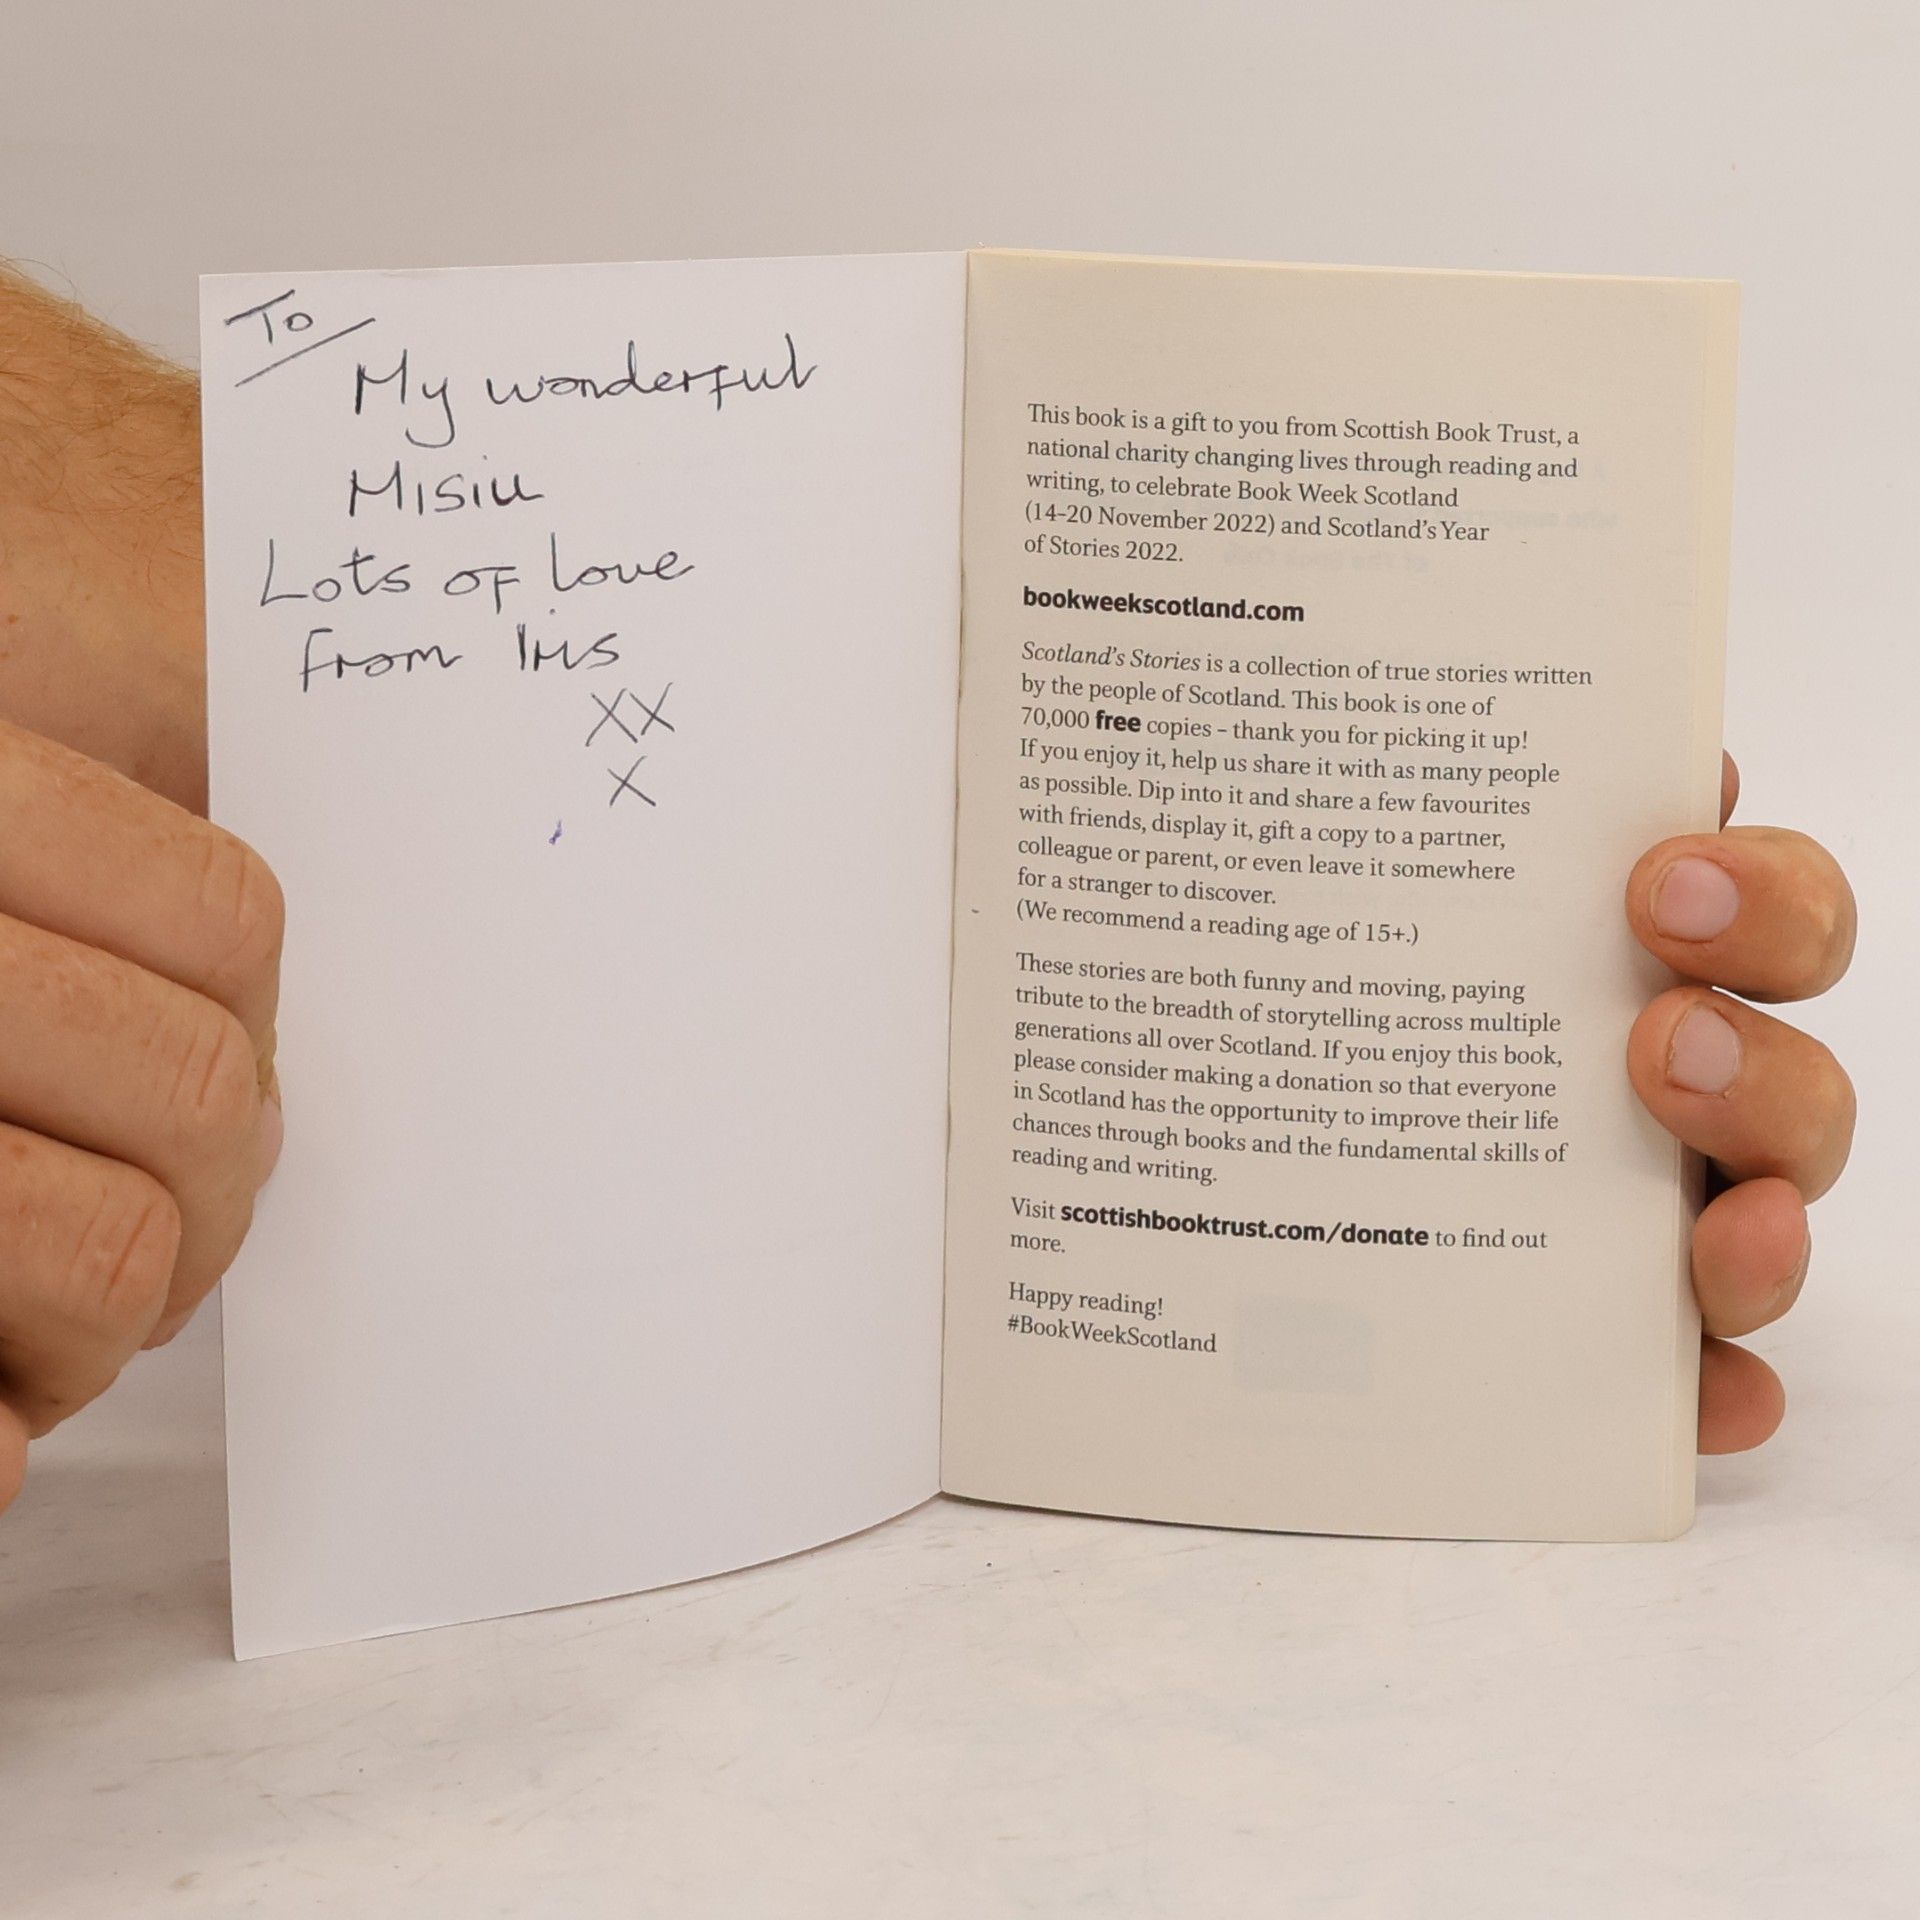 To
My wonderful
Misiu
Lots of love
from Iris
XX
X
This book is a gift to you from Scottish Book Trust, a
national charity changing lives through reading and
writing, to celebrate Book Week Scotland
(14-20 November 2022) and Scotland's Year
of Stories 2022.
bookweekscotland.com
Scotland's Stories is a collection of true stories written
by the people of Scotland. This book is one of
70,000 free copies – thank you for picking it up!
If you enjoy it, help us share it with as many people
as possible. Dip into it and share a few favourites
with friends, display it, gift a copy to a partner,
colleague or parent, or even leave it somewhere
for a stranger to discover.
(We recommend a reading age of 15+.)
These stories are both funny and moving, paying
tribute to the breadth of storytelling across multiple
generations all over Scotland. If you enjoy this book,
please consider making a donation so that everyone
in Scotland has the opportunity to improve their life
chances through books and the fundamental skills of
reading and writing.
Visit scottishbooktrust.com/donate to find out
more.
Happy reading!
#BookWeekScotland